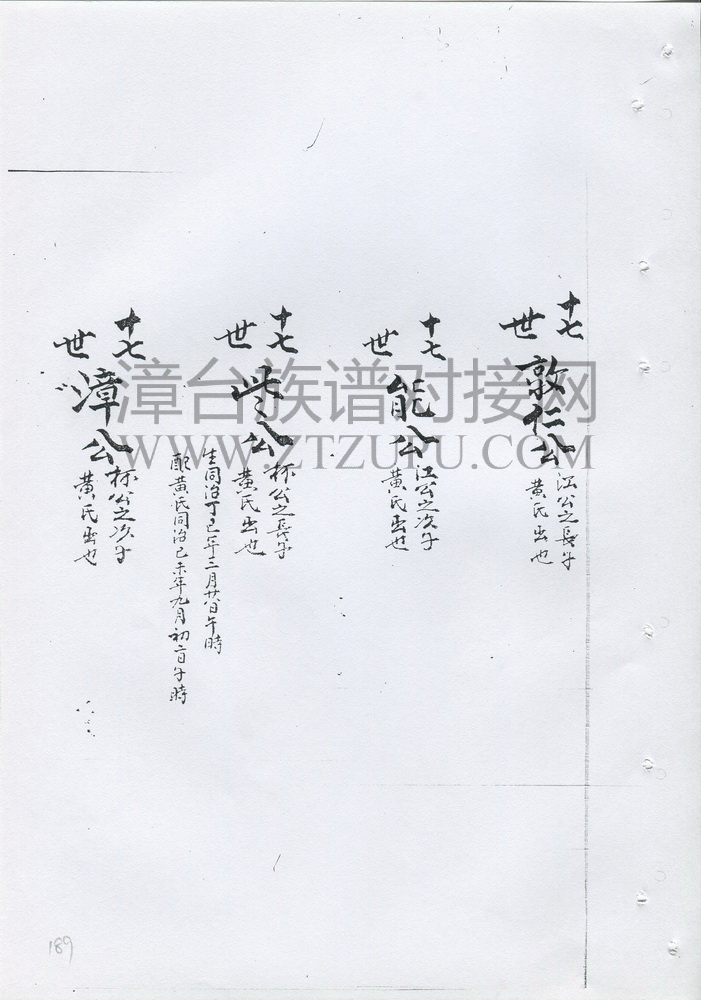 十七世
敦仁公
江公之長子
黄氏出也
十七世
能公
江公之次子
黄氏出也
十七世
公
杯公之長子
黄氏出也
生同治丁巳年三月廿八日午時
配黄氏同治己未年九月初二日午時
十七世
漳公
杯公之次子
黄氏出也
漳台族谱对接网
WWW.ZTZUPU.COM
189